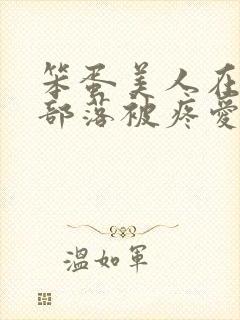 笨蛋美人在
部落被疼愛
溫如軍